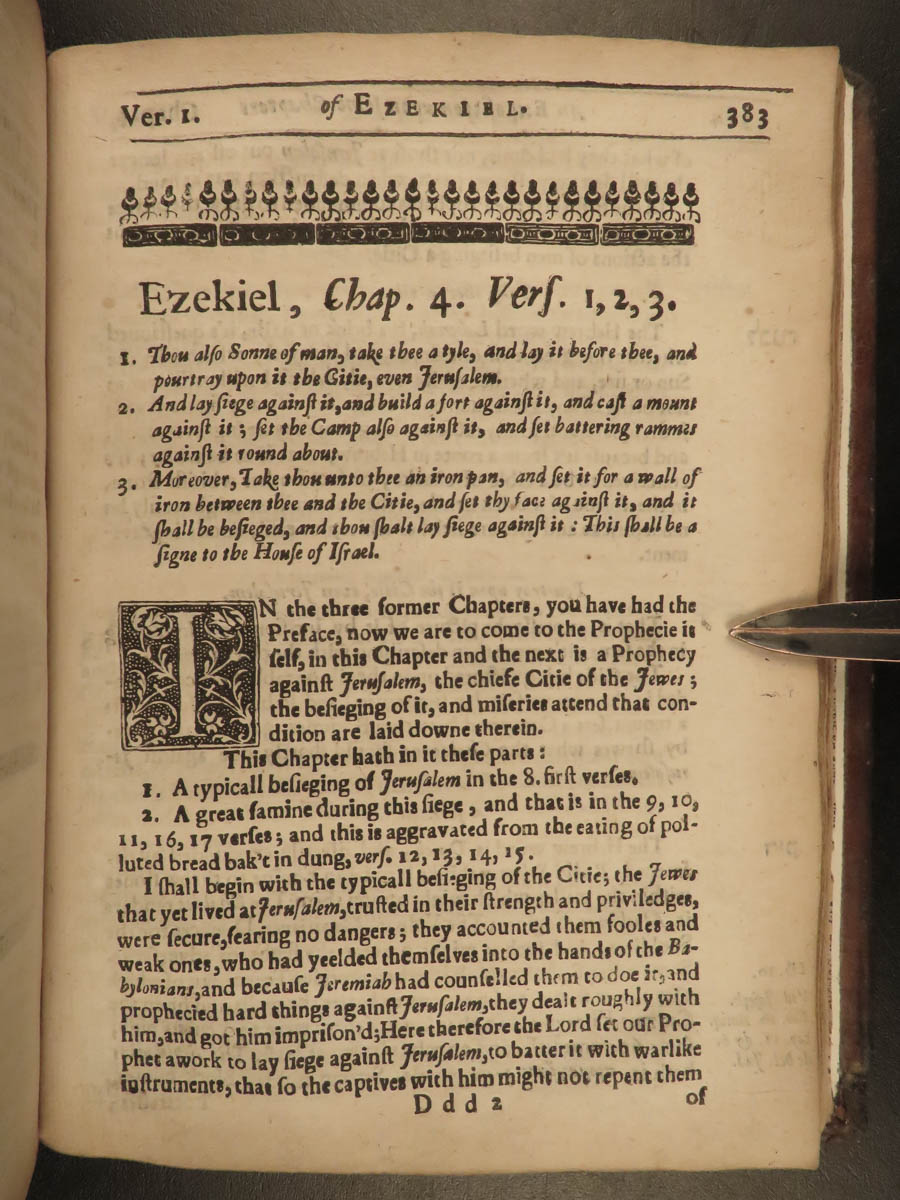 Ver. 1. of EZEKIEL. 383
Ezekiel, Chap. 4. Verſ. 1, 2, 3.
1. Thou alſo Sonne of man, take thee a tyle, and lay it before thee, and
pourtray upon it the Citie, even Jeruſalem.
2. And lay ſiege againſt it, and build a fort againſt it, and caſt a mount
againſt it; ſet the Camp alſo againſt it, and ſet battering rammes
againſt it round about.
3. Moreover, Take thou unto thee an iron pan, and ſet it for a wall of
iron between thee and the Citie, and ſet thy face againſt it, and it
ſhall be beſieged, and thou ſhalt lay ſiege againſt it: This ſhall be a
ſigne to the Houſe of Iſrael.
IN the three former Chapters, you have had the
Preface, now we are to come to the Prophecie it
ſelf, in this Chapter and the next is a Prophecy
againſt Jeruſalem, the chiefe Citie of the Jewes;
the beſieging of it, and miſeries attend that con-
dition are laid downe therein.
This Chapter hath in it theſe parts:
1. A typicall beſieging of Jeruſalem in the 8. firſt verſes.
2. A great famine during this ſiege, and that is in the 9, 10,
11, 16, 17 verſes; and this is aggravated from the eating of pol-
luted bread bak't in dung, verſ. 12, 13, 14, 15.
I ſhall begin with the typicall beſieging of the Citie; the Jewes
that yet lived at Jeruſalem, truſted in their ſtrength and priviledges,
were ſecure, fearing no dangers; they accounted them fooles and
weak ones, who had yeelded themſelves into the hands of the Ba-
bylonians, and becauſe Jeremiah had counſelled them to doe it, and
prophecied hard things againſt Jeruſalem, they dealt roughly with
him, and got him impriſon'd; Here therefore the Lord ſet our Pro-
phet awork to lay ſiege againſt Jeruſalem, to batter it with warlike
inſtruments, that ſo the captives with him might not repent them
Ddd 2 of